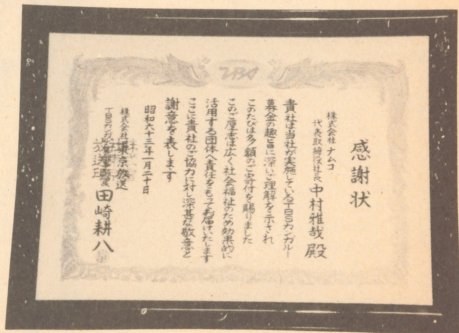 TBS
感謝状
株式会社 ナムコ
代表取締役社長 中村雅哉 殿
貴社は当社が実施しているTBSカンガルー
募金の趣旨に深いご理解を示され
このたびは多額のご寄付を賜りました
このご厚志は広く社会福祉のため効果的に
活用する団体へ責任をもってお届けいたします
ここに貴社のご協力に対し深甚な敬意と
謝意を表します
昭和六十三年一月二十日
株式会社東京放送
田崎耕八